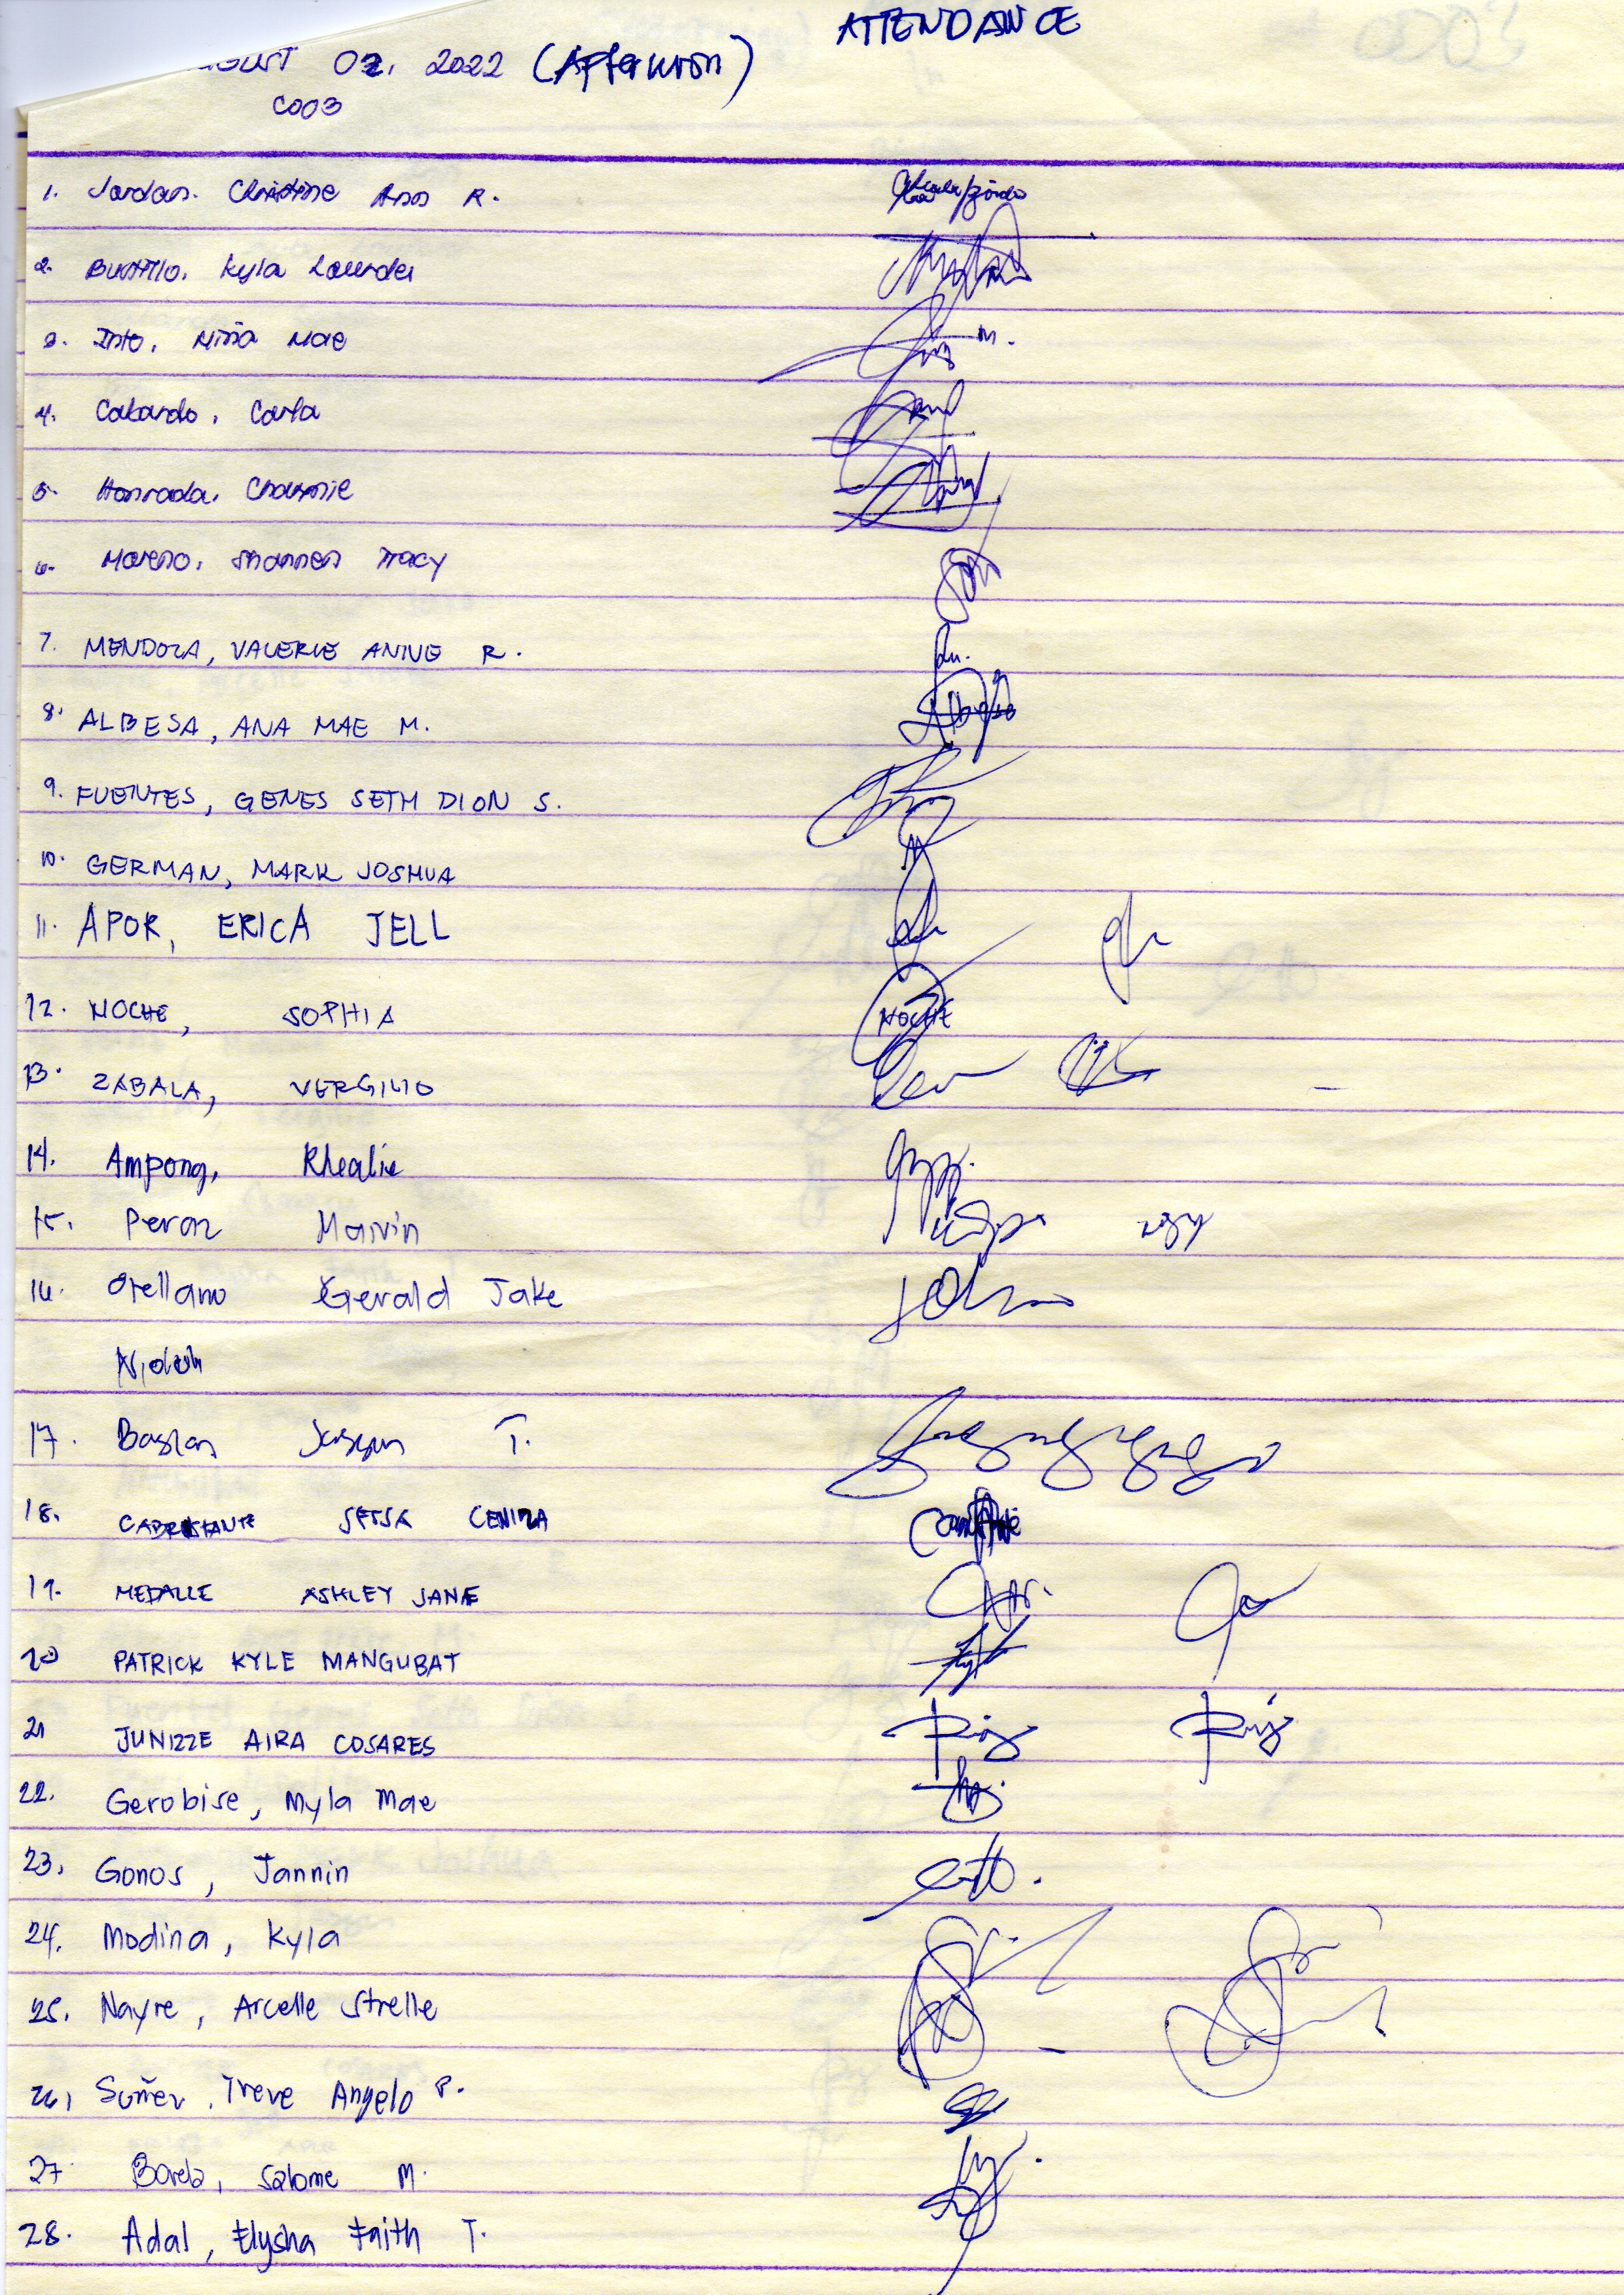 ATTENDANCE
UGUST 02, 2022 (Afternoon)
C003
1. Jordan. Christine Ann R.
2. Bustillo, Kyla Lourdes
3. Into, Niña Mae
4. Cabardo, Carla
5. Honrada, Charmie
6. Moreno, Shannen Tracy
7. MENDOZA, VALERIE ANNE R.
8. ALBESA, ANA MAE M.
9. FUENTES, GENES SETH DION S.
10. GERMAN, MARK JOSHUA
11. APOR, ERICA JELL
12. NOCHE, SOPHIA NOCHE
13. ZABALA, VERGILIO
14. Ampong, Rhealie
15. Peraz Marvin
16. Orellano Gerald Jake
17. T.
18. CENIZA
19. MEDALLE ASHLEY JANE
20 PATRICK KYLE MANGUBAT
21 JUNIZZE AIRA COSARES
22. Gerobise, Myla Mae
23. Gonos, Jannin
24. Modina, Kyla
25. Nayre, Arcelle Strelle
26, Suñer, Treve Angelo P.
27 Borela, Salome M.
28. Adal, Elysha Faith T.